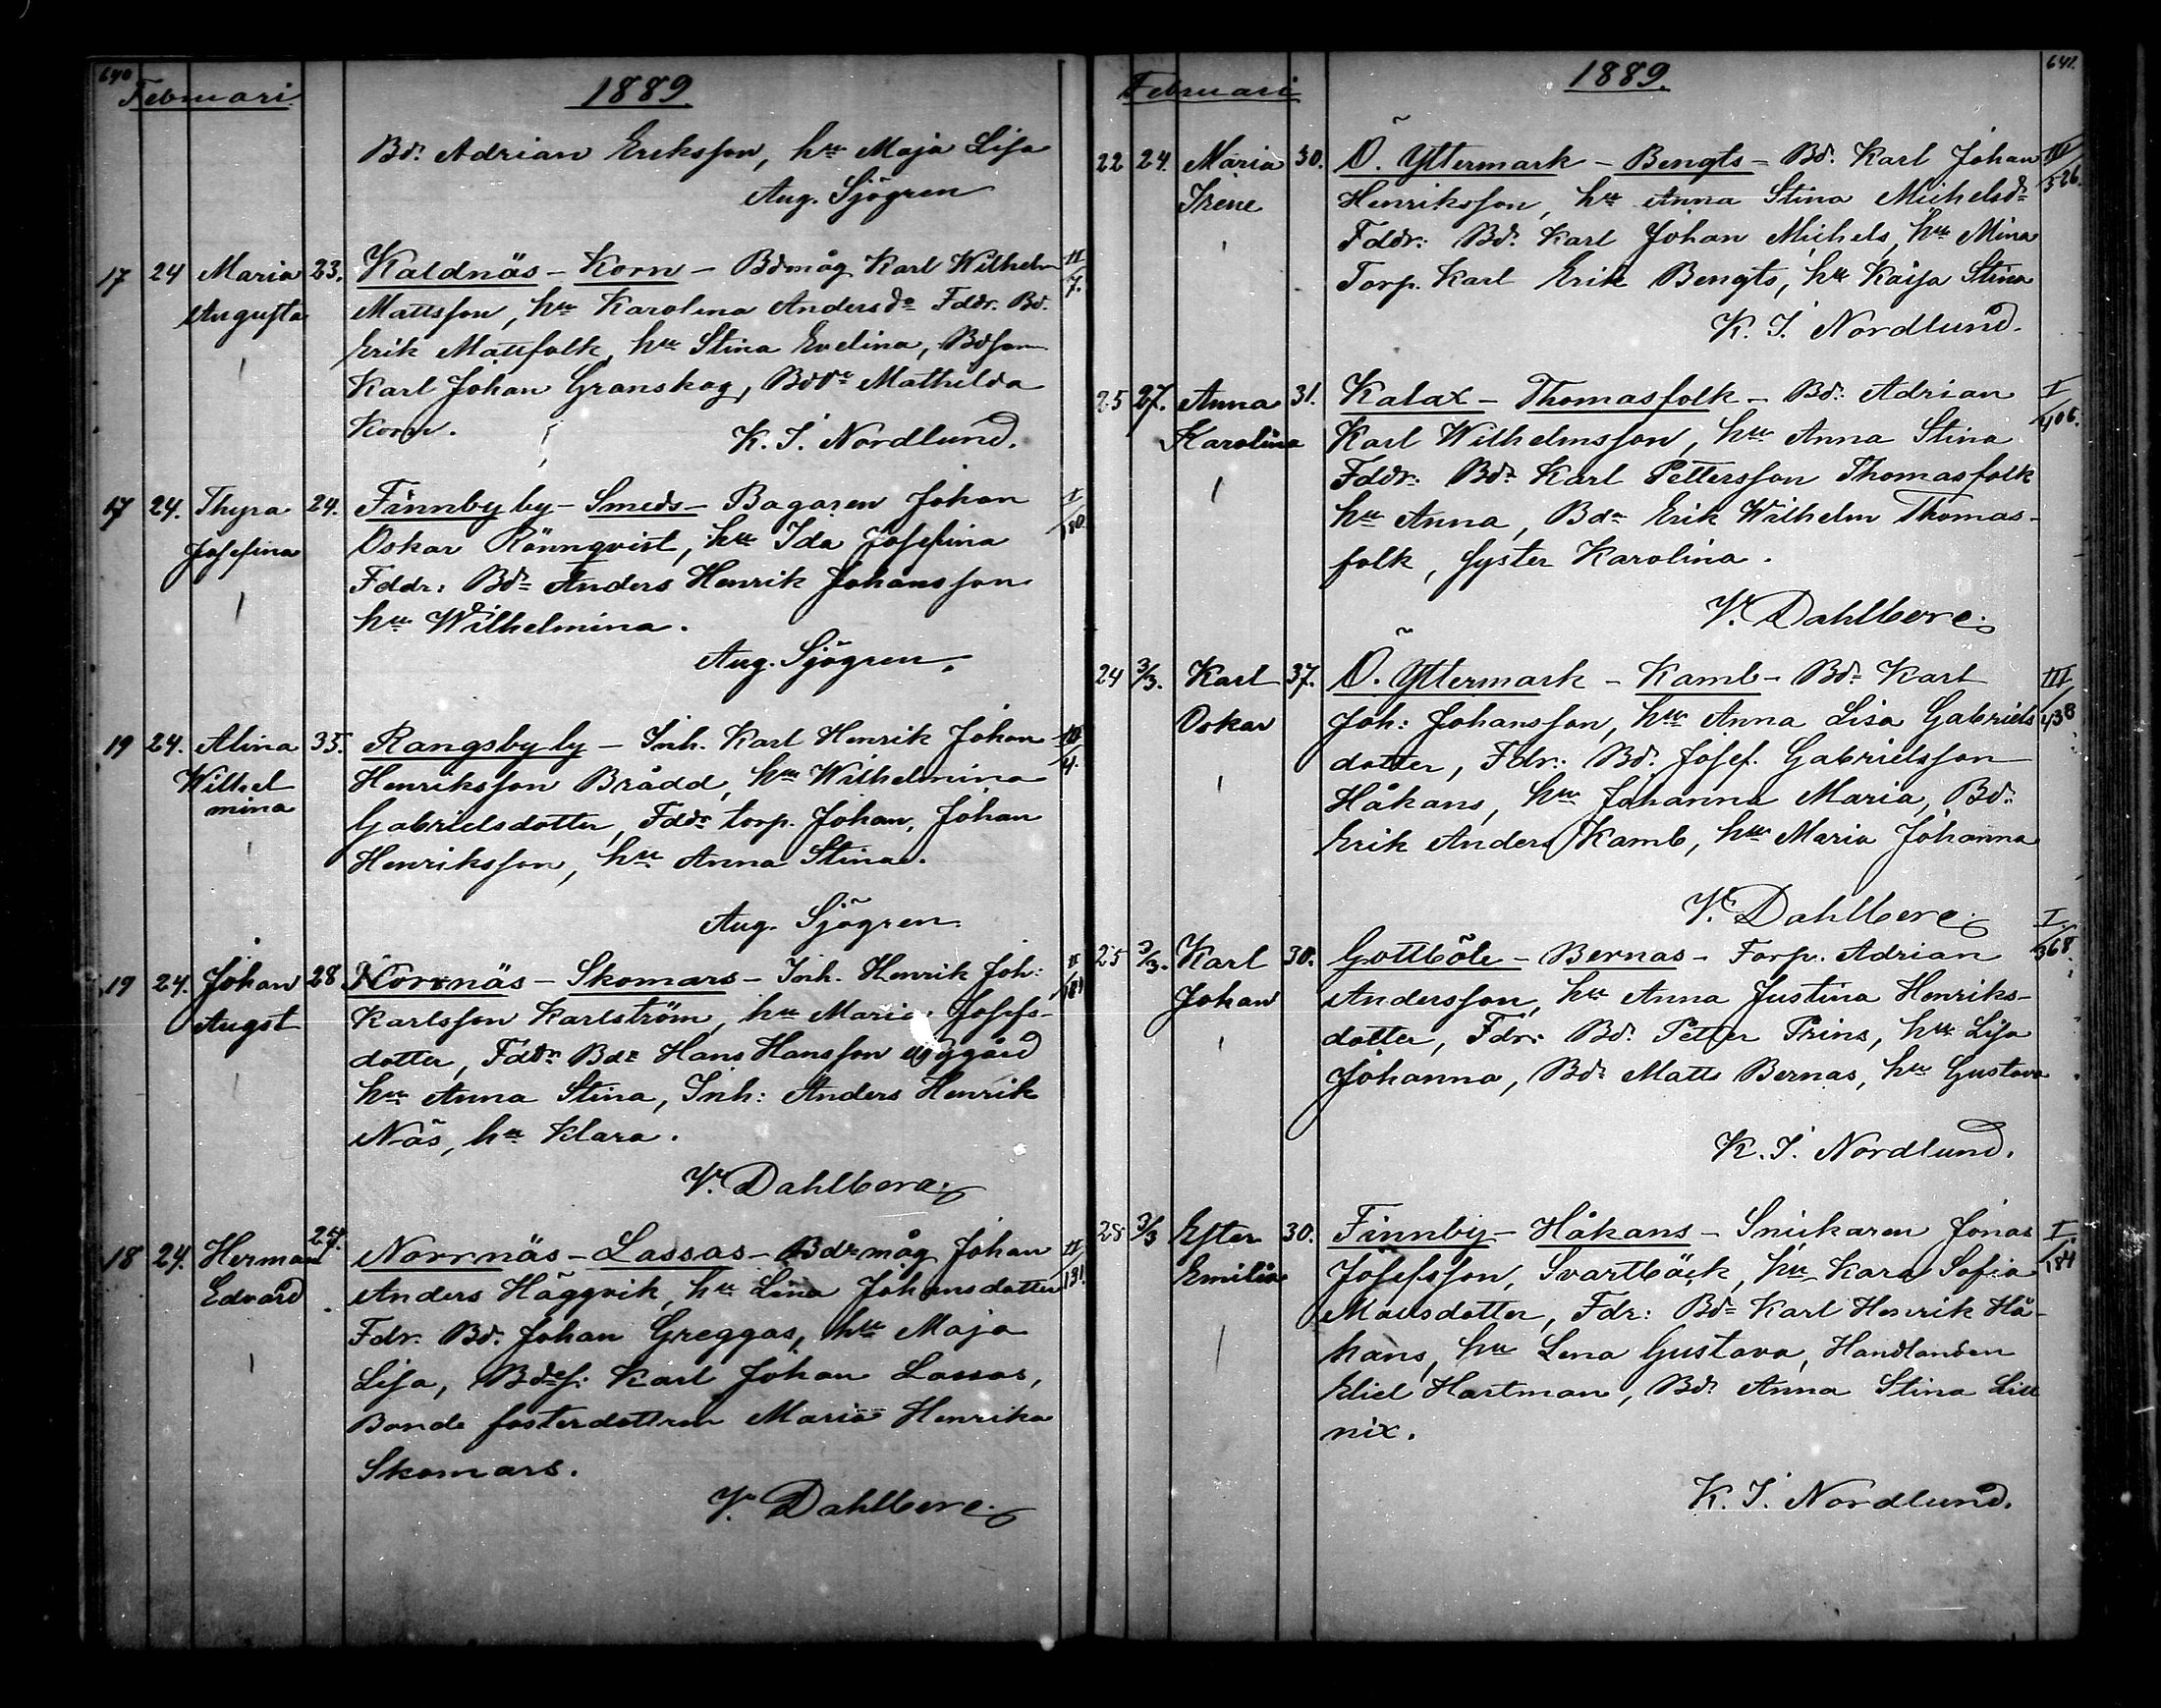 640
Februari
1889.
Bd: Adrian Eriksson, hu Maja Lisa
Aug. Sjögren
17 24 Maria 23. Kaldnäs - Korn - Bdmåg Karl Wilhelm II
Augusta Mattsson, hu Karolina Andersdr Fddr. Bd. 7.
Erik Mattfolk, hu Stina Evelina, Bdson
Karl Johan Granskog, Bddr Mathilda
Korn. K. J. Nordlund.
17 24. Thyra 24. Finnby by - Smeds - Bagaren Johan I
Josefina Oskar Rönnqvist, hu Ida Josefina 180.
Fddr: Bdn Anders Henrik Johansson
hu Wilhelmina.
Aug. Sjögren.
19 24. Alina 35. Rangsby by - Inh. Karl Henrik Johan III
Wilhel Henriksson Brådd, hu Wilhelmina 4.
mina Gabrielsdotter, Fddr torp. Johan, Johan
Henriksson, hu Anna Stina.
Aug. Sjögren.
19 24. Johan 28 Norrnäs - Skomars - Inh. Henrik Joh: II
Augst Karlsson Karlström, hu Maria Josefs-
dotter, Fddr Bdn Hans Hansson Nygård
hu Anna Stina, Inh: Anders Henrik
Näs, hu Klara.
V. Dahlberg.
18 24. Herman 27. Norrnäs - Lassas - Bdemåg Johan II
Edvard Anders Häggvik, hu Lina Johansdotter 131.
Fdr. Bd. Johan Greggas, hu Maja
Lisa, Bdes. Karl Johan Lassas,
Bonde fosterdottren Maria Henrika
Skomars.
V. Dahlberg.
641.
Februari
1889.
22 24. Maria 30. Ö. Yttermark - Bengts - Bd. Karl Johan III
Irene Henriksson, hu Anna Stina Michelsdr 526.
Fddr: Bd. Karl Johan Michels, hu Mina
Torp. Karl Erik Bengts, hu Kaisa Stina
K. J. Nordlund.
25 27. Anna 31. Kalax - Thomasfolk - Bd: Adrian I
Karolina Karl Wilhelmsson, hu Anna Stina 406.
Fddr: Bdn Karl Pettersson Thomasfolk
hu Anna, Bdn Erik Wilhelm Thomas-
folk, syster Karolina.
V. Dahlberg.
24 3/3. Karl 37. Ö. Yttermark - Kamb - Bdn Karl III
Oskar Joh: Johansson, hu Anna Lisa Gabriels 438
dotter, Fdr: Bd. Josef. Gabrielsson
Håkans, hu Johanna Maria, Bd.
Erik Anders Kamb, hu Maria Johanna
V. Dahlberg.
25 3/3. Karl 30. Gottböle - Bernas - Torp. Adrian I
Johan Andersson, hu Anna Justina Henriks- 368.
dotter, Fdr: Bd. Petter Prins, hu Lisa
Johanna, Bd. Matts Bernas, hu Gustava
K. J. Nordlund.
28 3/3 Ester 30. Finnby - Håkans - Snickaren Jonas I
Emilia Josefsson, Svartbäck, hu Kara Sofia 184
Matsdotter, Fdr: Bdn Karl Henrik Hå-
kans, hu Lena Gustava, Handlanden
Eliel Hartman, Bdr Anna Stina Lill
nix.
K. J. Nordlund.